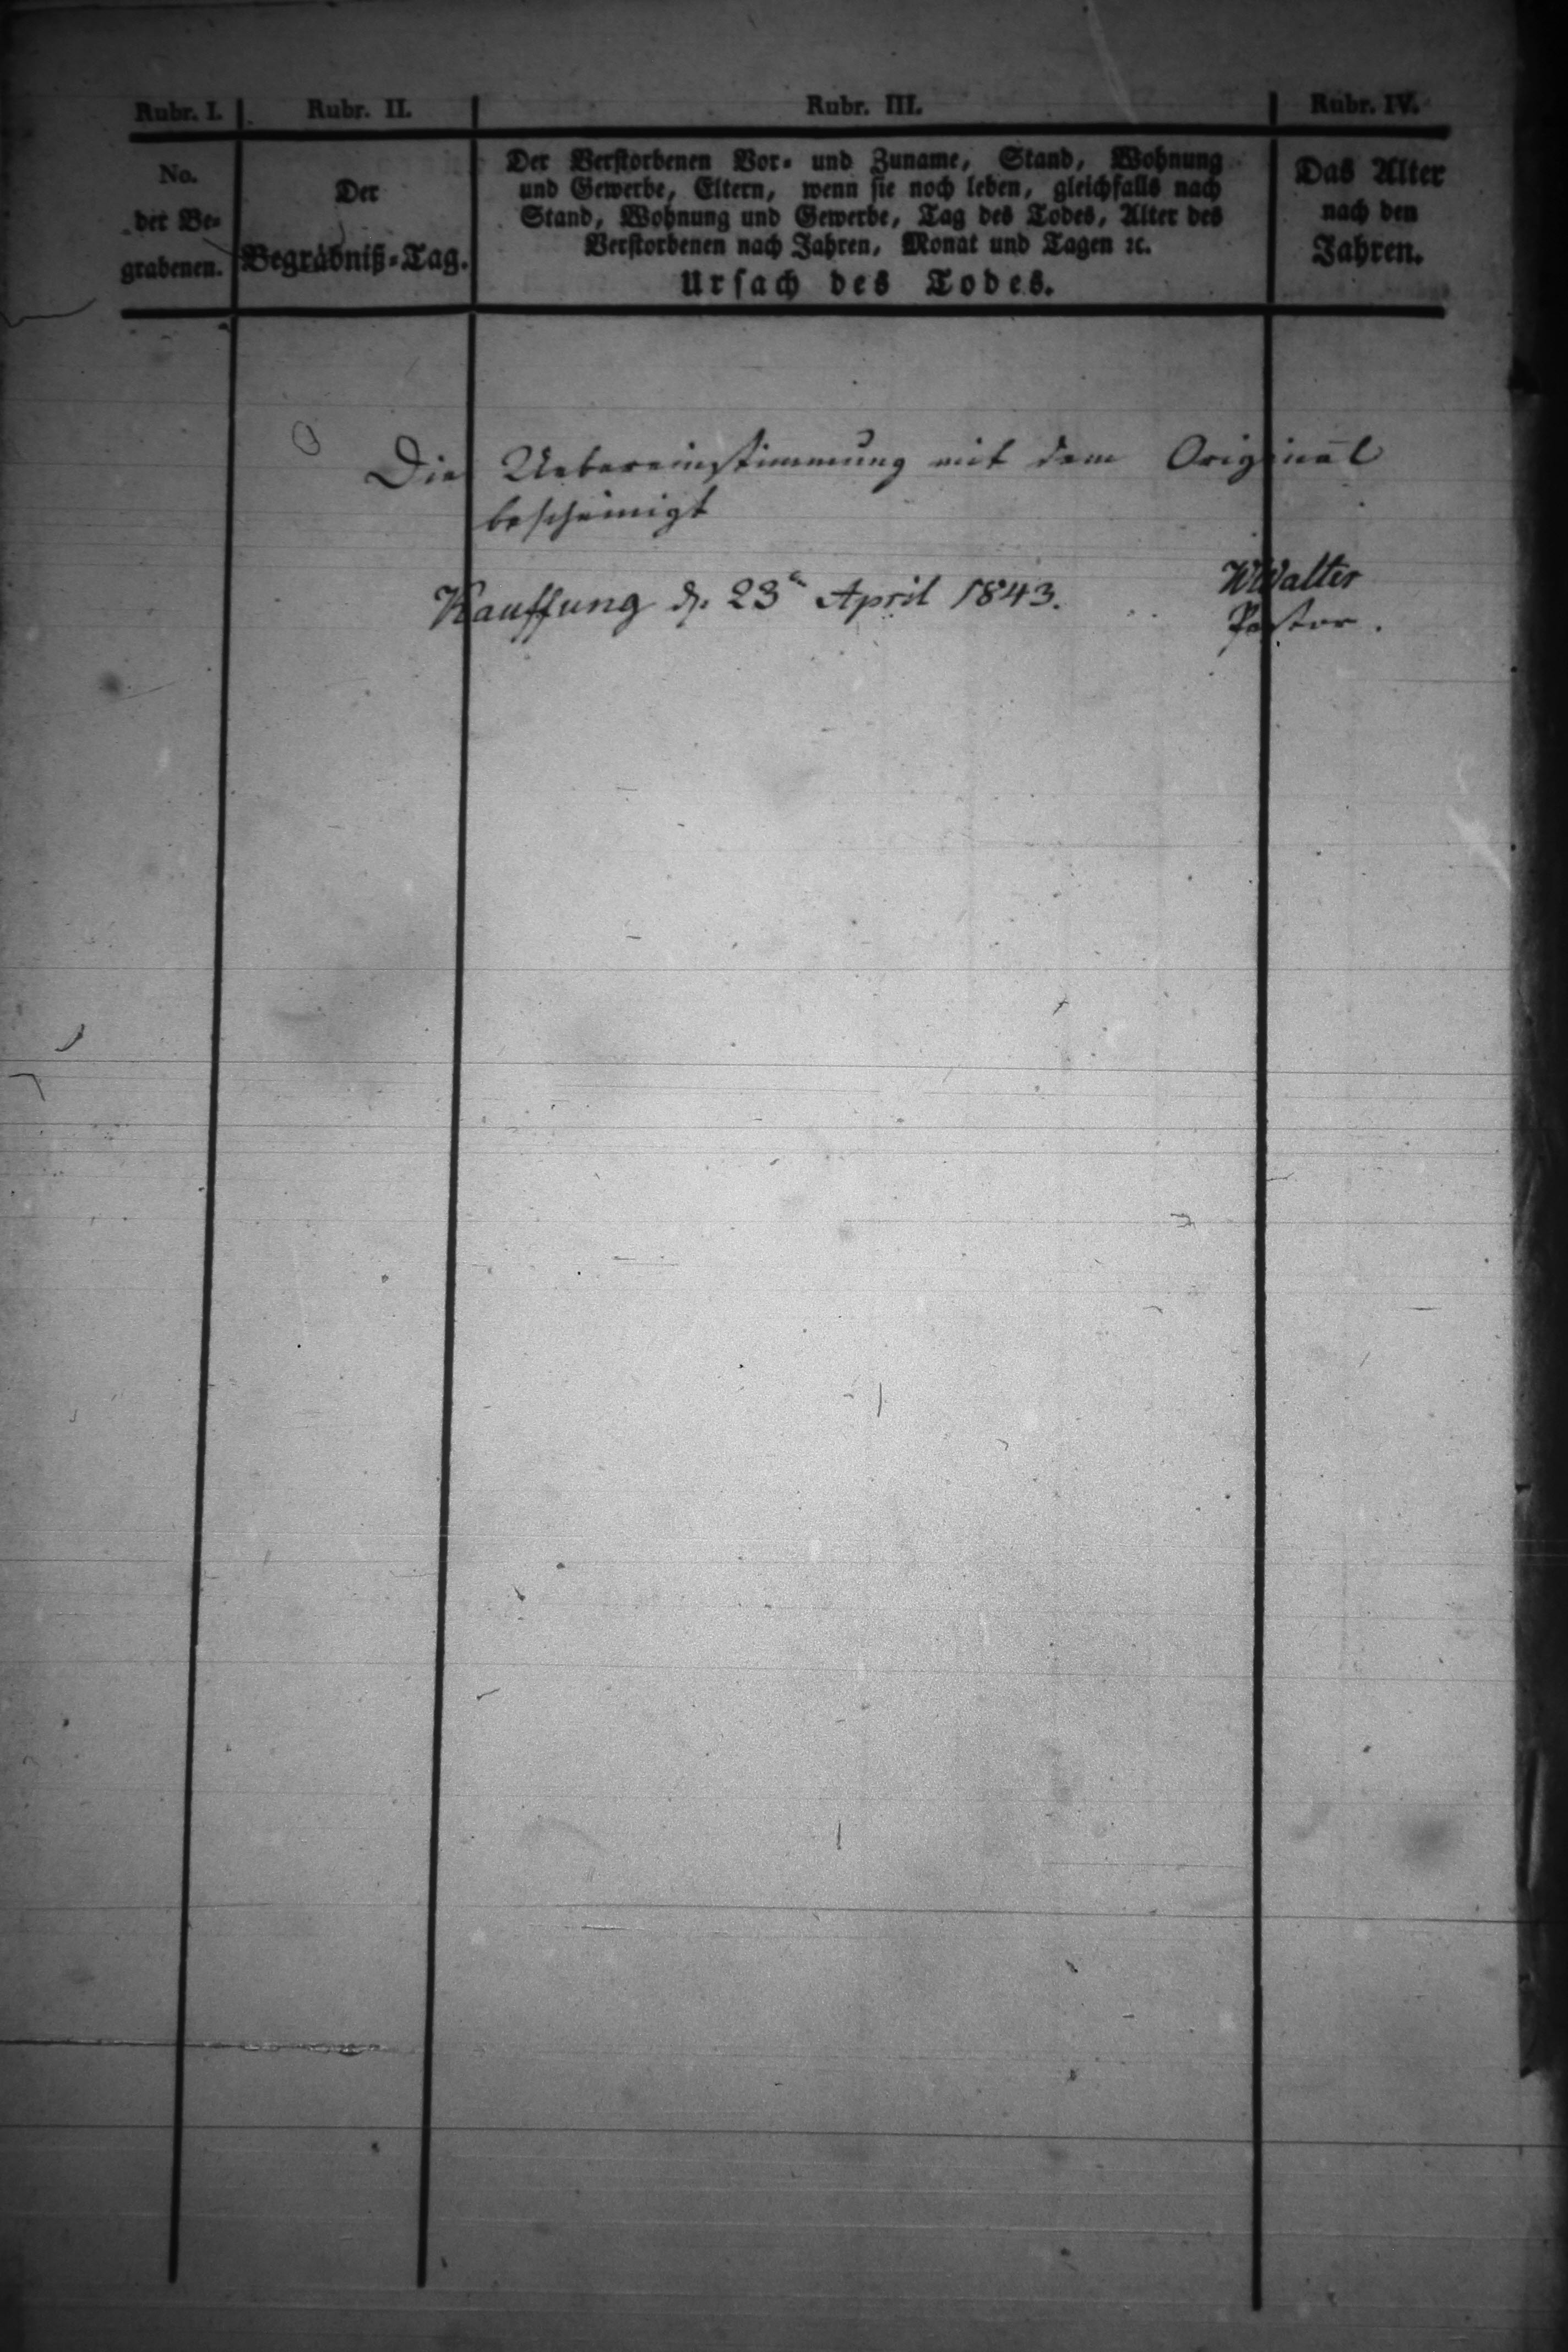 Rubr. I. Rubr. II. Rubr. III. Rubr. IV.
No.
der Be-
grabenen.
Der
Begräbniß-Tag.
Der Verstorbenen Vor- und Zuname, Stand, Wohnung
und Gewerbe, Eltern, wenn sie noch leben, gleichfalls nach
Stand, Wohnung und Gewerbe, Tag des Todes, Alter des
Verstorbenen nach Jahren, Monat und Tagen ꝛc.
Ursach des Todes.
Das Alter
nach den
Jahren.
Die Uebereinstimmung mit dem Original
bescheinigt
Kauffung d. 23n April 1843.
WWalter
Pastor.